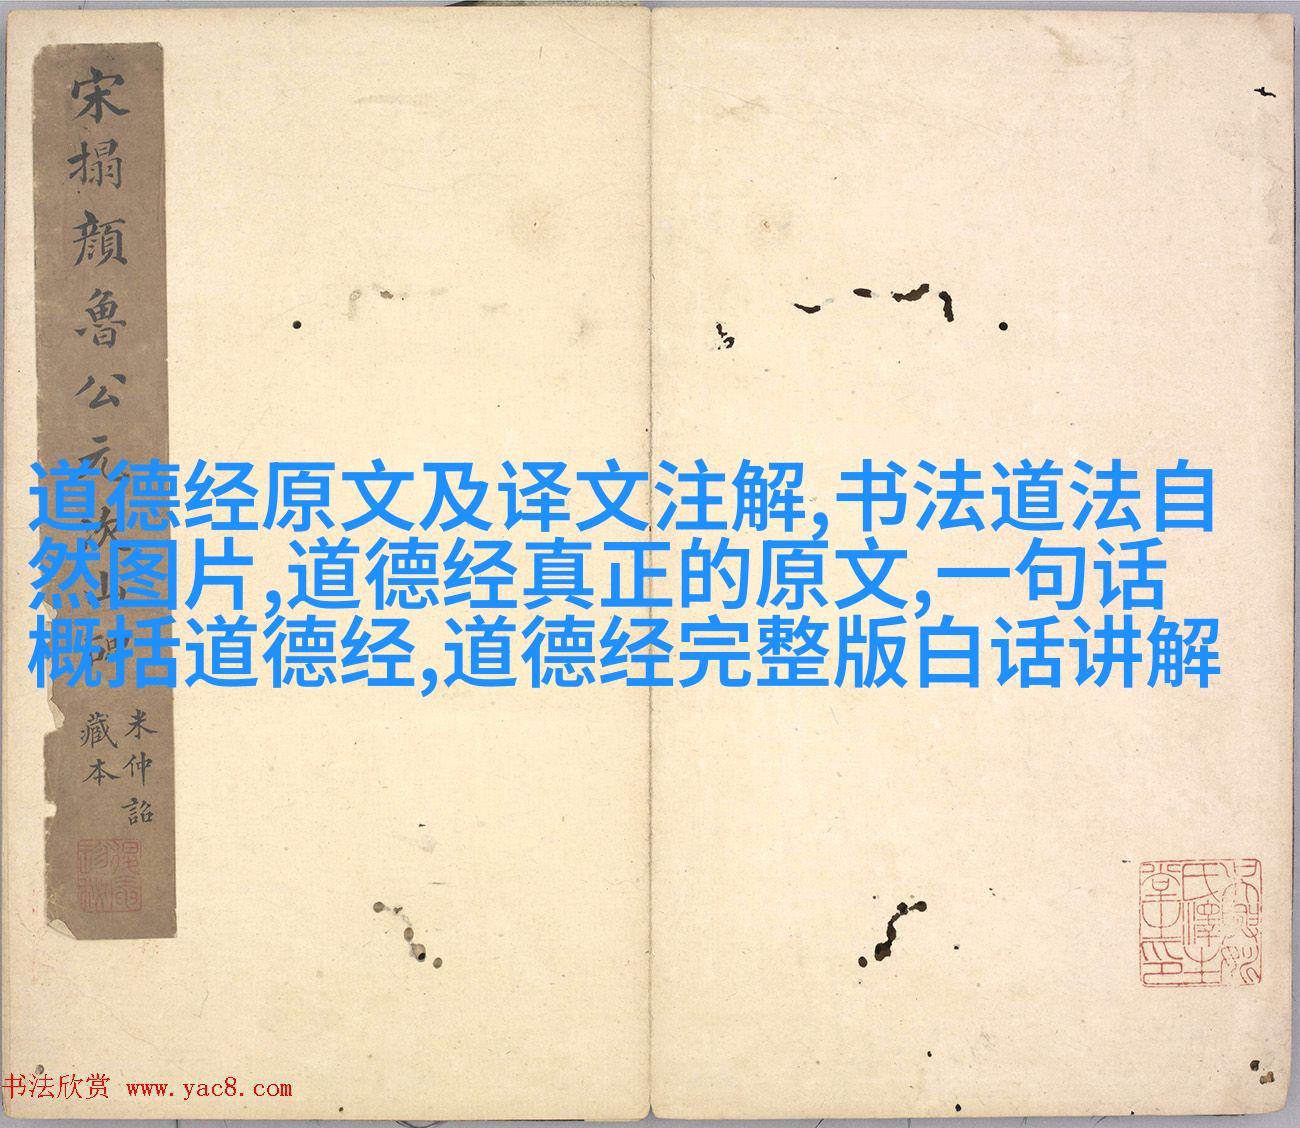 宋搨顔魯公元次山碑
米仲詔
藏本
道德经原文及译文注解,书法道法自
然图片,道德经真正的原文,一句话
概括道德经,道德经完整版白话讲解
书法欣赏 www.yac8.com